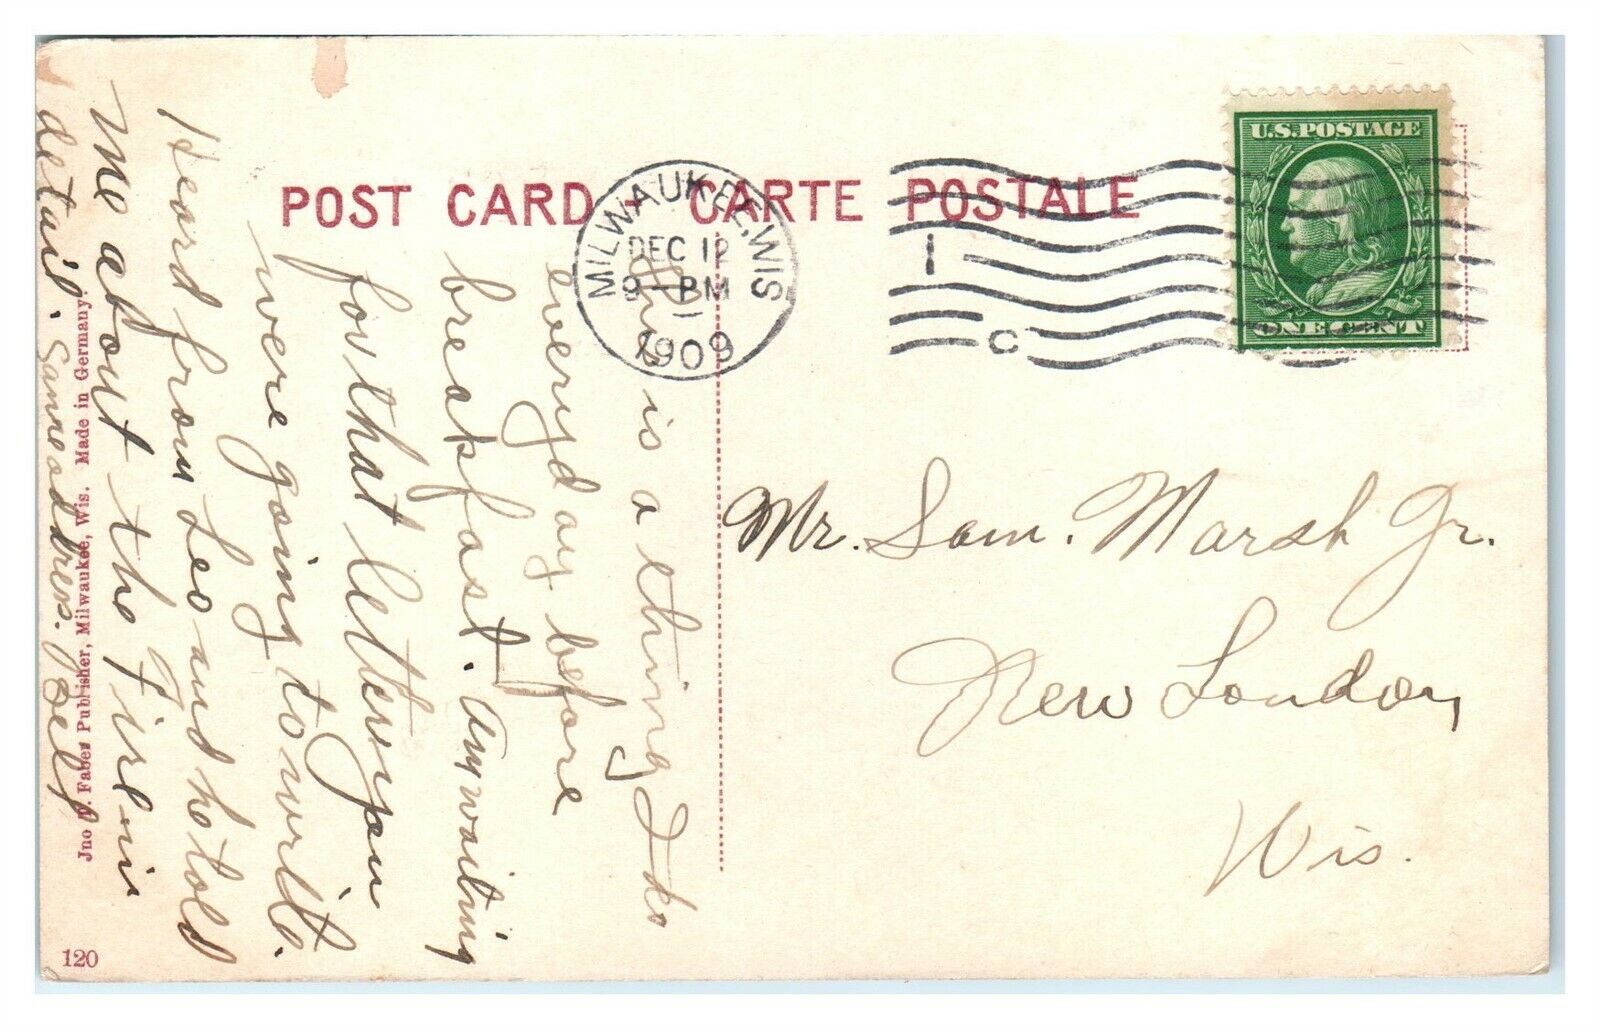 POST CARD - CARTE POSTALE
MILWAUKEE, WIS.
DEC 12
9 - PM
1909
1
C
U.S. POSTAGE
ONE CENT
Mr. Sam. Marsh Jr.
New London,
Wis.
This is a thing I do
everyday before
breakfast. Am waiting
for that letter you
were going to write.
Heard from Leo and he told
me about the fire in
detail. Same address.
Jno. Faber Publisher, Milwaukee, Wis. Made in Germany.
120